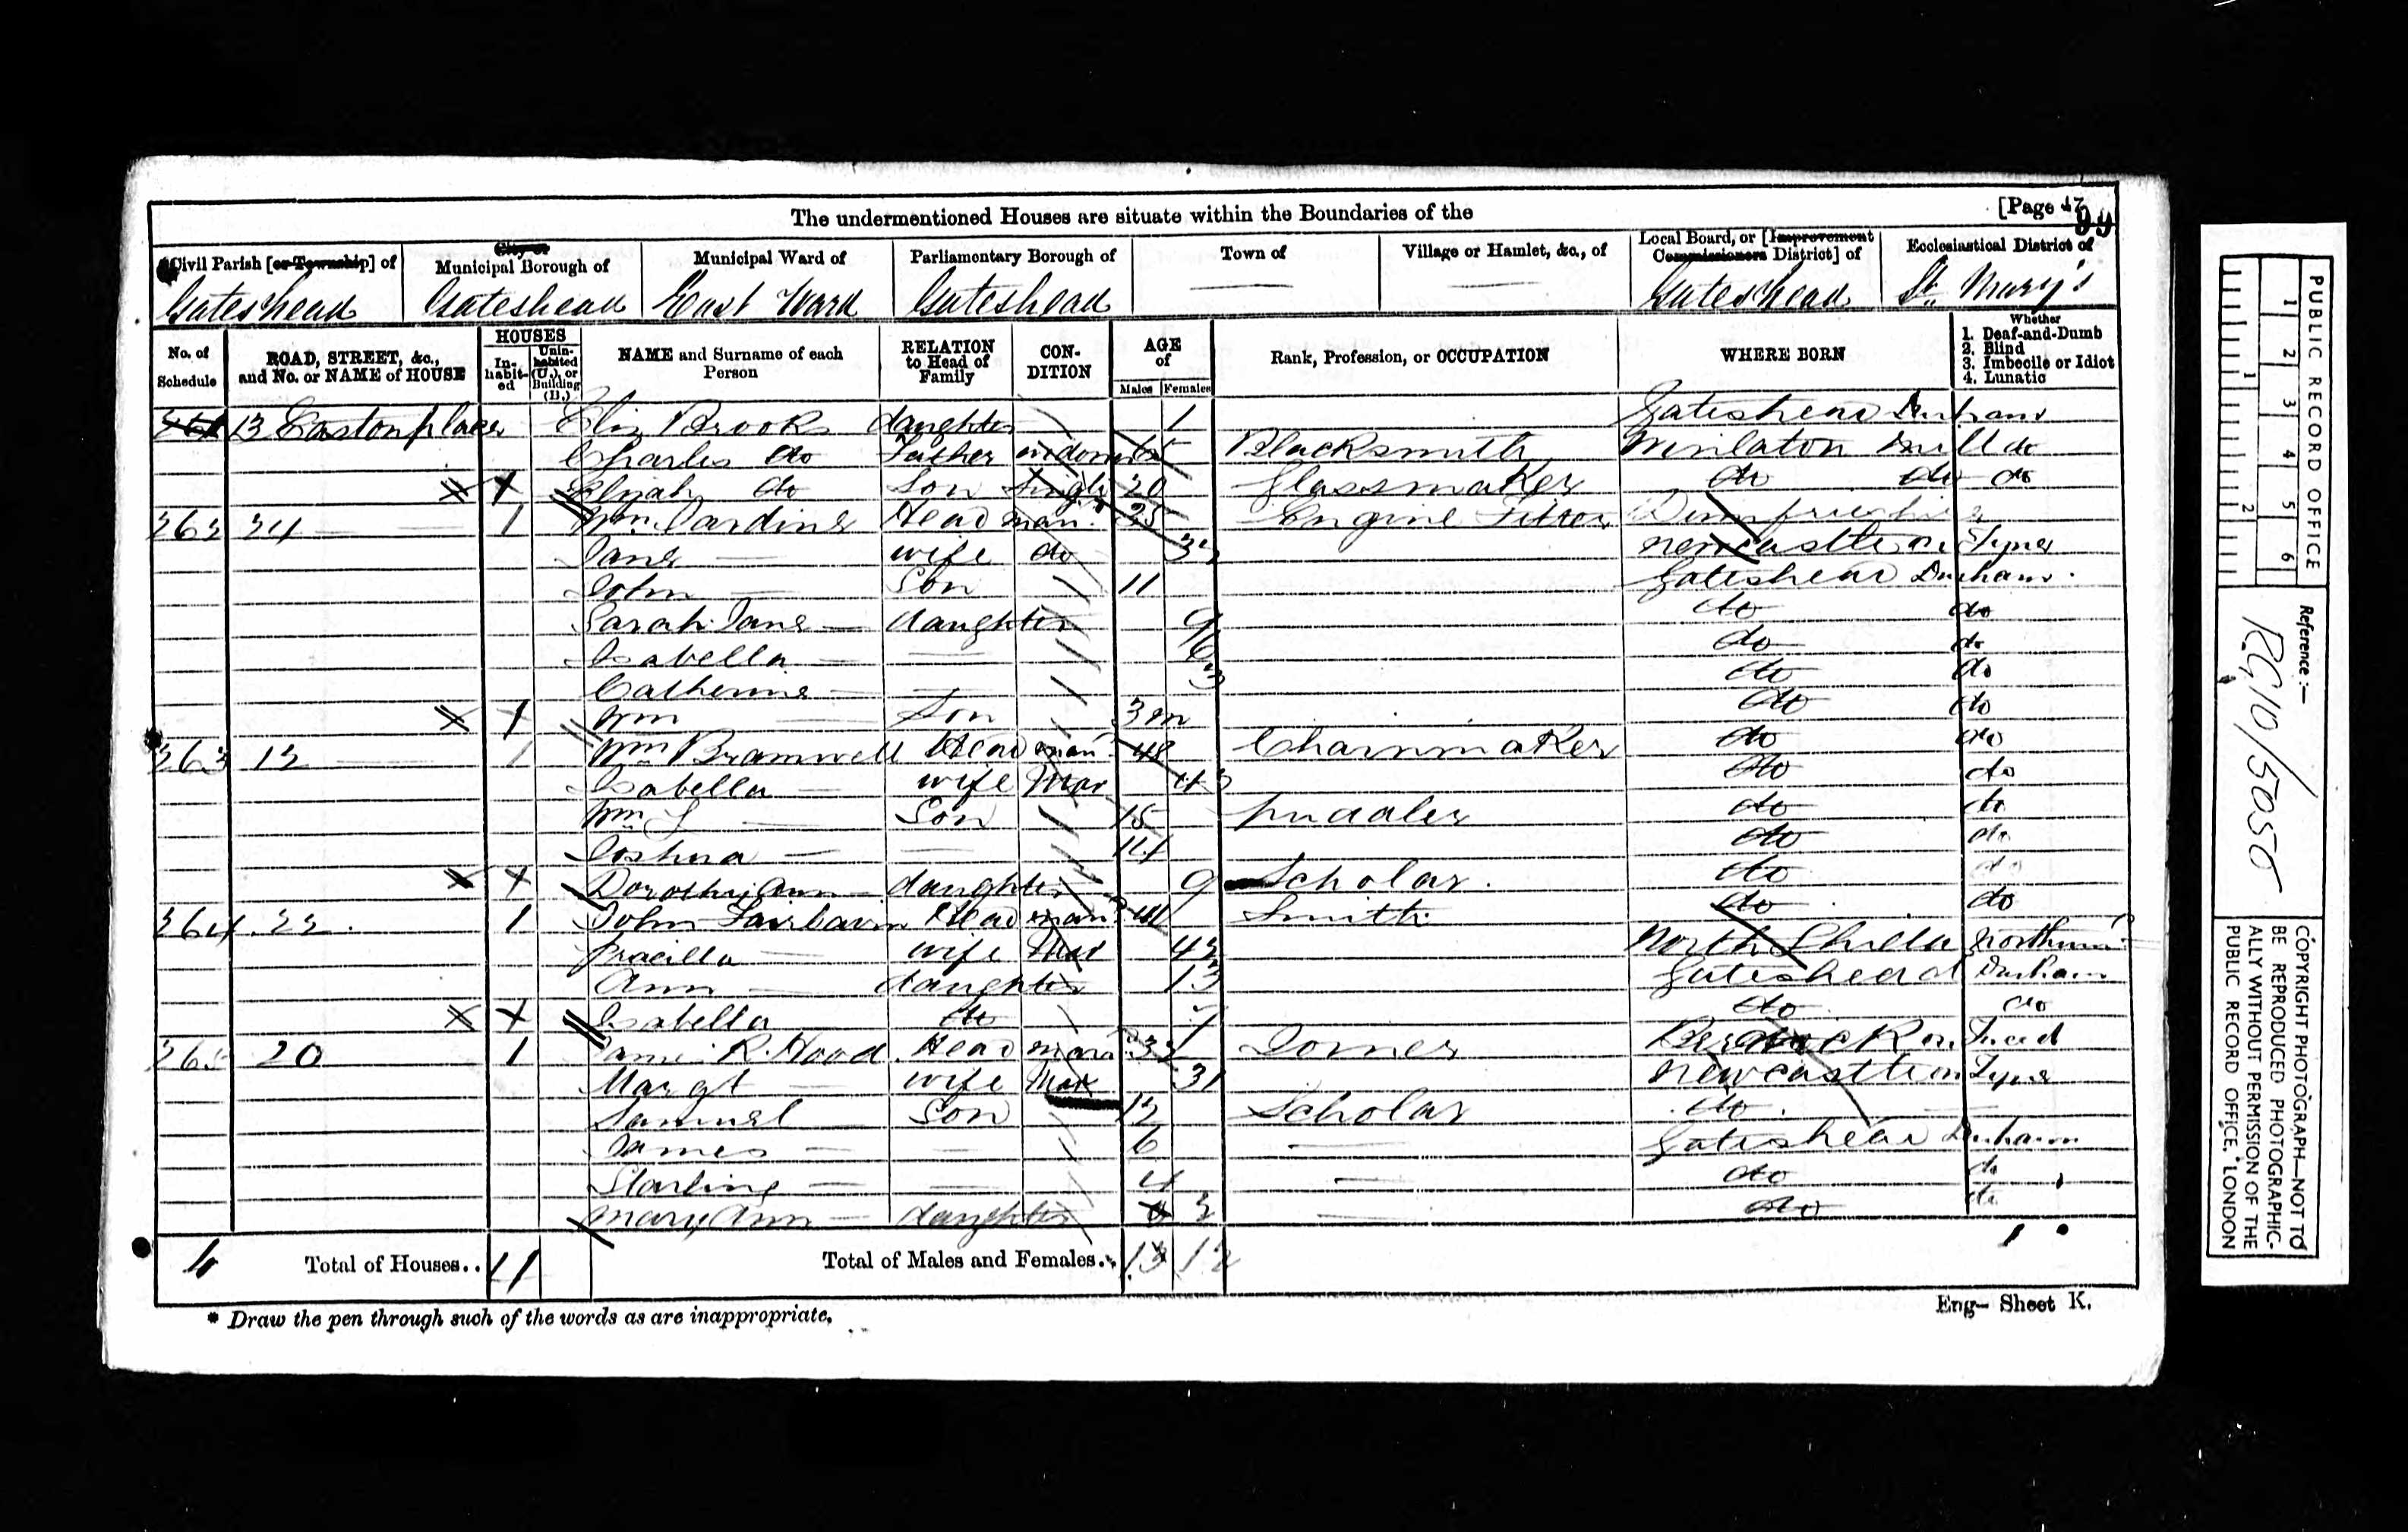 The undermentioned Houses are situate within the Boundaries of the
[Page 47
99
Civil Parish [or Township] of
City or Municipal Borough of
Municipal Ward of
Parliamentary Borough of
Town of
Village or Hamlet, &c., of
Local Board, or [Improvement Commissioners District] of
Ecclesiastical District of
Gateshead
Gateshead
East Ward
Gateshead
Gateshead
St. Mary's
No. of Schedule
ROAD, STREET, &c., and No. or NAME of HOUSE
HOUSES
In-habit-ed
Unin-habited (U.), or Building (B.)
NAME and Surname of each Person
RELATION to Head of Family
CON-DITION
AGE of
Males
Females
Rank, Profession, or OCCUPATION
WHERE BORN
Whether
1. Deaf-and-Dumb
2. Blind
3. Imbecile or Idiot
4. Lunatic
13 Easton place Eliz Brooks daughter 1 Gateshead Durham
Charles do Father widower Blacksmith Winlaton Mill do
Elijah do Son Single 20 Glassmaker do do do
262 24 1 Wm Jardine Head marr 35 Engine Fitter
Jane wife do Newcastle on Tyne
John Son 11 Gateshead Durham
Sarah Jane daughter 9 do do
Isabella 6 do do
Catherine 3 do do
Wm Son 3m do do
263 12 1 Wm Bramwell Head marr 48 Chainmaker do do
Isabella wife Mar 43 do do
Wm Son 15 puddler do do
Joshua 11 do do
Dorothy Ann daughter 9 Scholar do do
264 22 1 John Fairbairn Head marr Smith do do
wife Mar 42 North Shields
Ann daughter 13 Gateshead Durham
Isabella do 7 do do
265 20 1 James R. Hood Head marr Joiner Berwick on Tweed
Margt wife Mar 31 Newcastle on Tyne
Samuel Son 12 Scholar do
James 6 Gateshead Durham
Starling 4 do do
Mary Ann daughter 2 do do
4 Total of Houses.. 4
Total of Males and Females.. 13 12
* Draw the pen through such of the words as are inappropriate.
Eng- Sheet K.
PUBLIC RECORD OFFICE
1 2 3 4 5 6
1 2
Reference :-
R.G. 10/5050
COPYRIGHT PHOTOGRAPH—NOT TO
BE REPRODUCED PHOTOGRAPHIC-
ALLY WITHOUT PERMISSION OF THE
PUBLIC RECORD OFFICE, LONDON